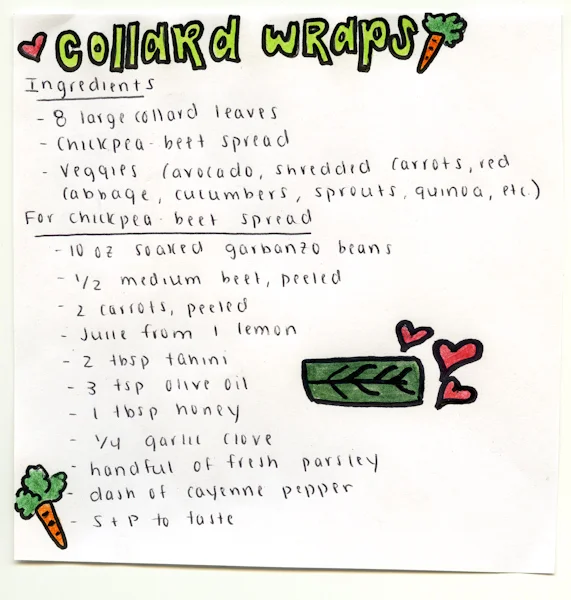 Collard Wraps
Ingredients
- 8 large collard leaves
- Chickpea-beet spread
- Veggies (avocado, shredded carrots, red
cabbage, cucumbers, sprouts, quinoa, etc.)
For chickpea-beet spread
- 10 oz soaked garbanzo beans
- 1/2 medium beet, peeled
- 2 carrots, peeled
- Juice from 1 lemon
- 2 tbsp tahini
- 3 tsp olive oil
- 1 tbsp honey
- 1/4 garlic clove
- handful of fresh parsley
- dash of cayenne pepper
- S + P to taste